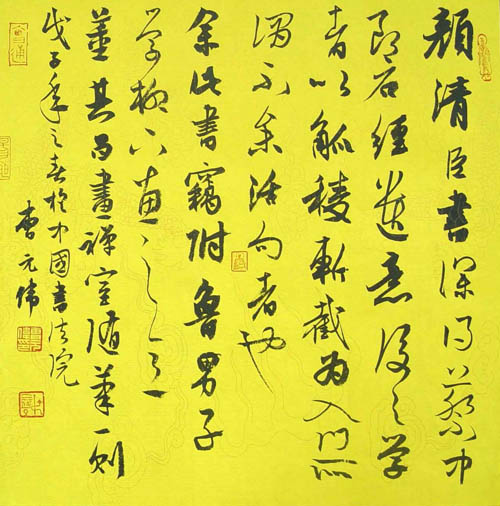 顏清臣書深得蔡中
郎石經遺意後之學
者以觚稜斬截為入門所
謂不參活句者也
余此書竊附魯男子
学柳下惠
董其昌畫禪室隨筆一則
戊子年之春於中國書法院
曹元偉